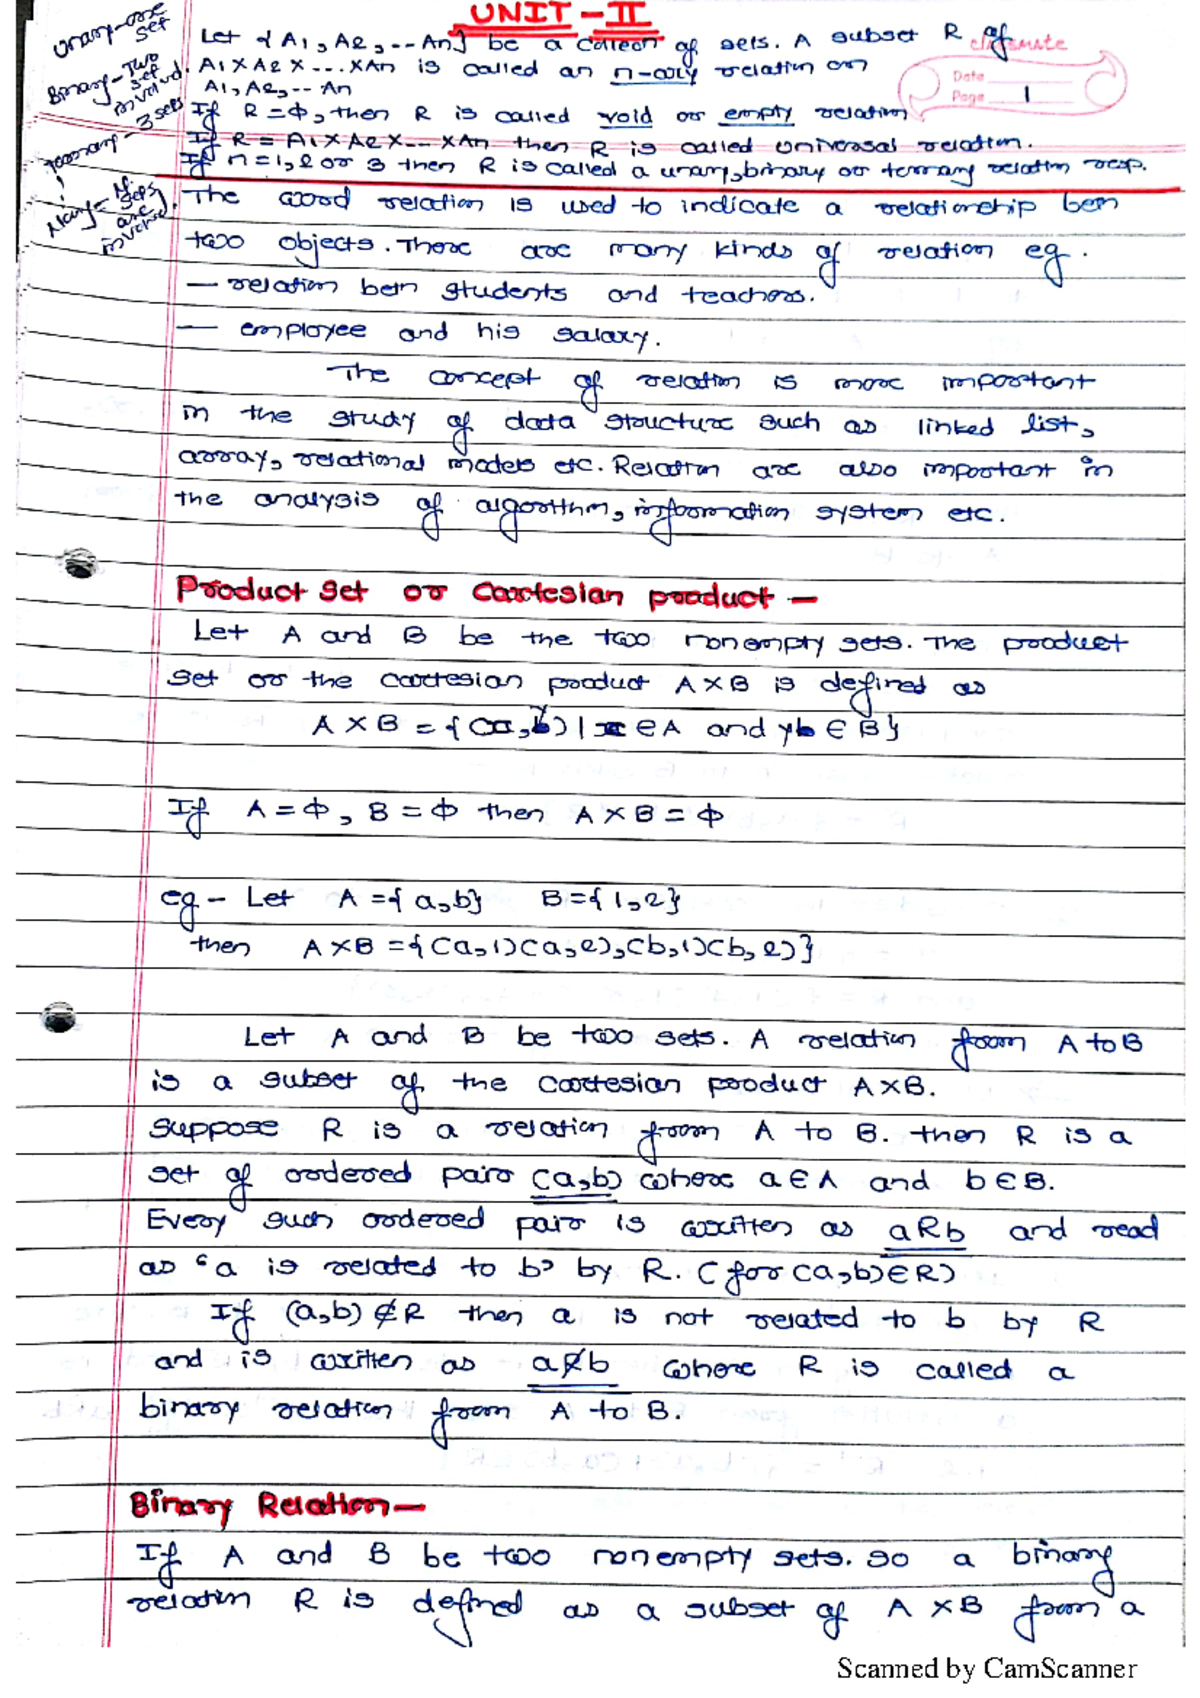 UNIT - II
Unary - one set
Binary - Two set involved.
Ternary - 3 sets
Nary - N sets are involved.
classmate
Date
Page 1
Let { A1, A2, -- An} be a collecn of sets. A subset R of
A1 X A2 X ... XAn is called an n-ary relation on
A1, A2, -- An
If R = Φ, then R is called void or empty relation
If R = A1 X A2 X... XAn then R is called universal relation.
If n=1, 2 or 3 then R is called a unary, binary or ternary relation resp.
The word relation is used to indicate a relationship betn
two objects. There are many kinds of relation eg.
— relation betn students and teachers.
— employee and his salary.
The concept of relation is more important
in the study of data structure such as linked list,
array, relational models etc. Relation are also important in
the analysis of algorithm, information system etc.
Product set or Cartesian product —
Let A and B be the two nonempty sets. The product
set or the cartesian product A X B is defined as
A X B = { (x, y) | x ∈ A and y ∈ B}
If A = Φ, B = Φ then A X B = Φ
eg - Let A = { a, b} B = { 1, 2}
then A X B = { (a, 1) (a, 2), (b, 1) (b, 2) }
Let A and B be two sets. A relation from A to B
is a subset of the cartesian product A X B.
Suppose R is a relation from A to B. then R is a
set of ordered pairs (a, b) where a ∈ A and b ∈ B.
Every such ordered pair is written as aRb and read
as ‘a is related to b’ by R. ( for (a, b) ∈ R)
If (a, b) ∉ R then a is not related to b by R
and is written as aR̸b where R is called a
binary relation from A to B.
Binary Relation —
If A and B be two nonempty sets. so a binary
relation R is defined as a subset of A X B from a
Scanned by CamScanner